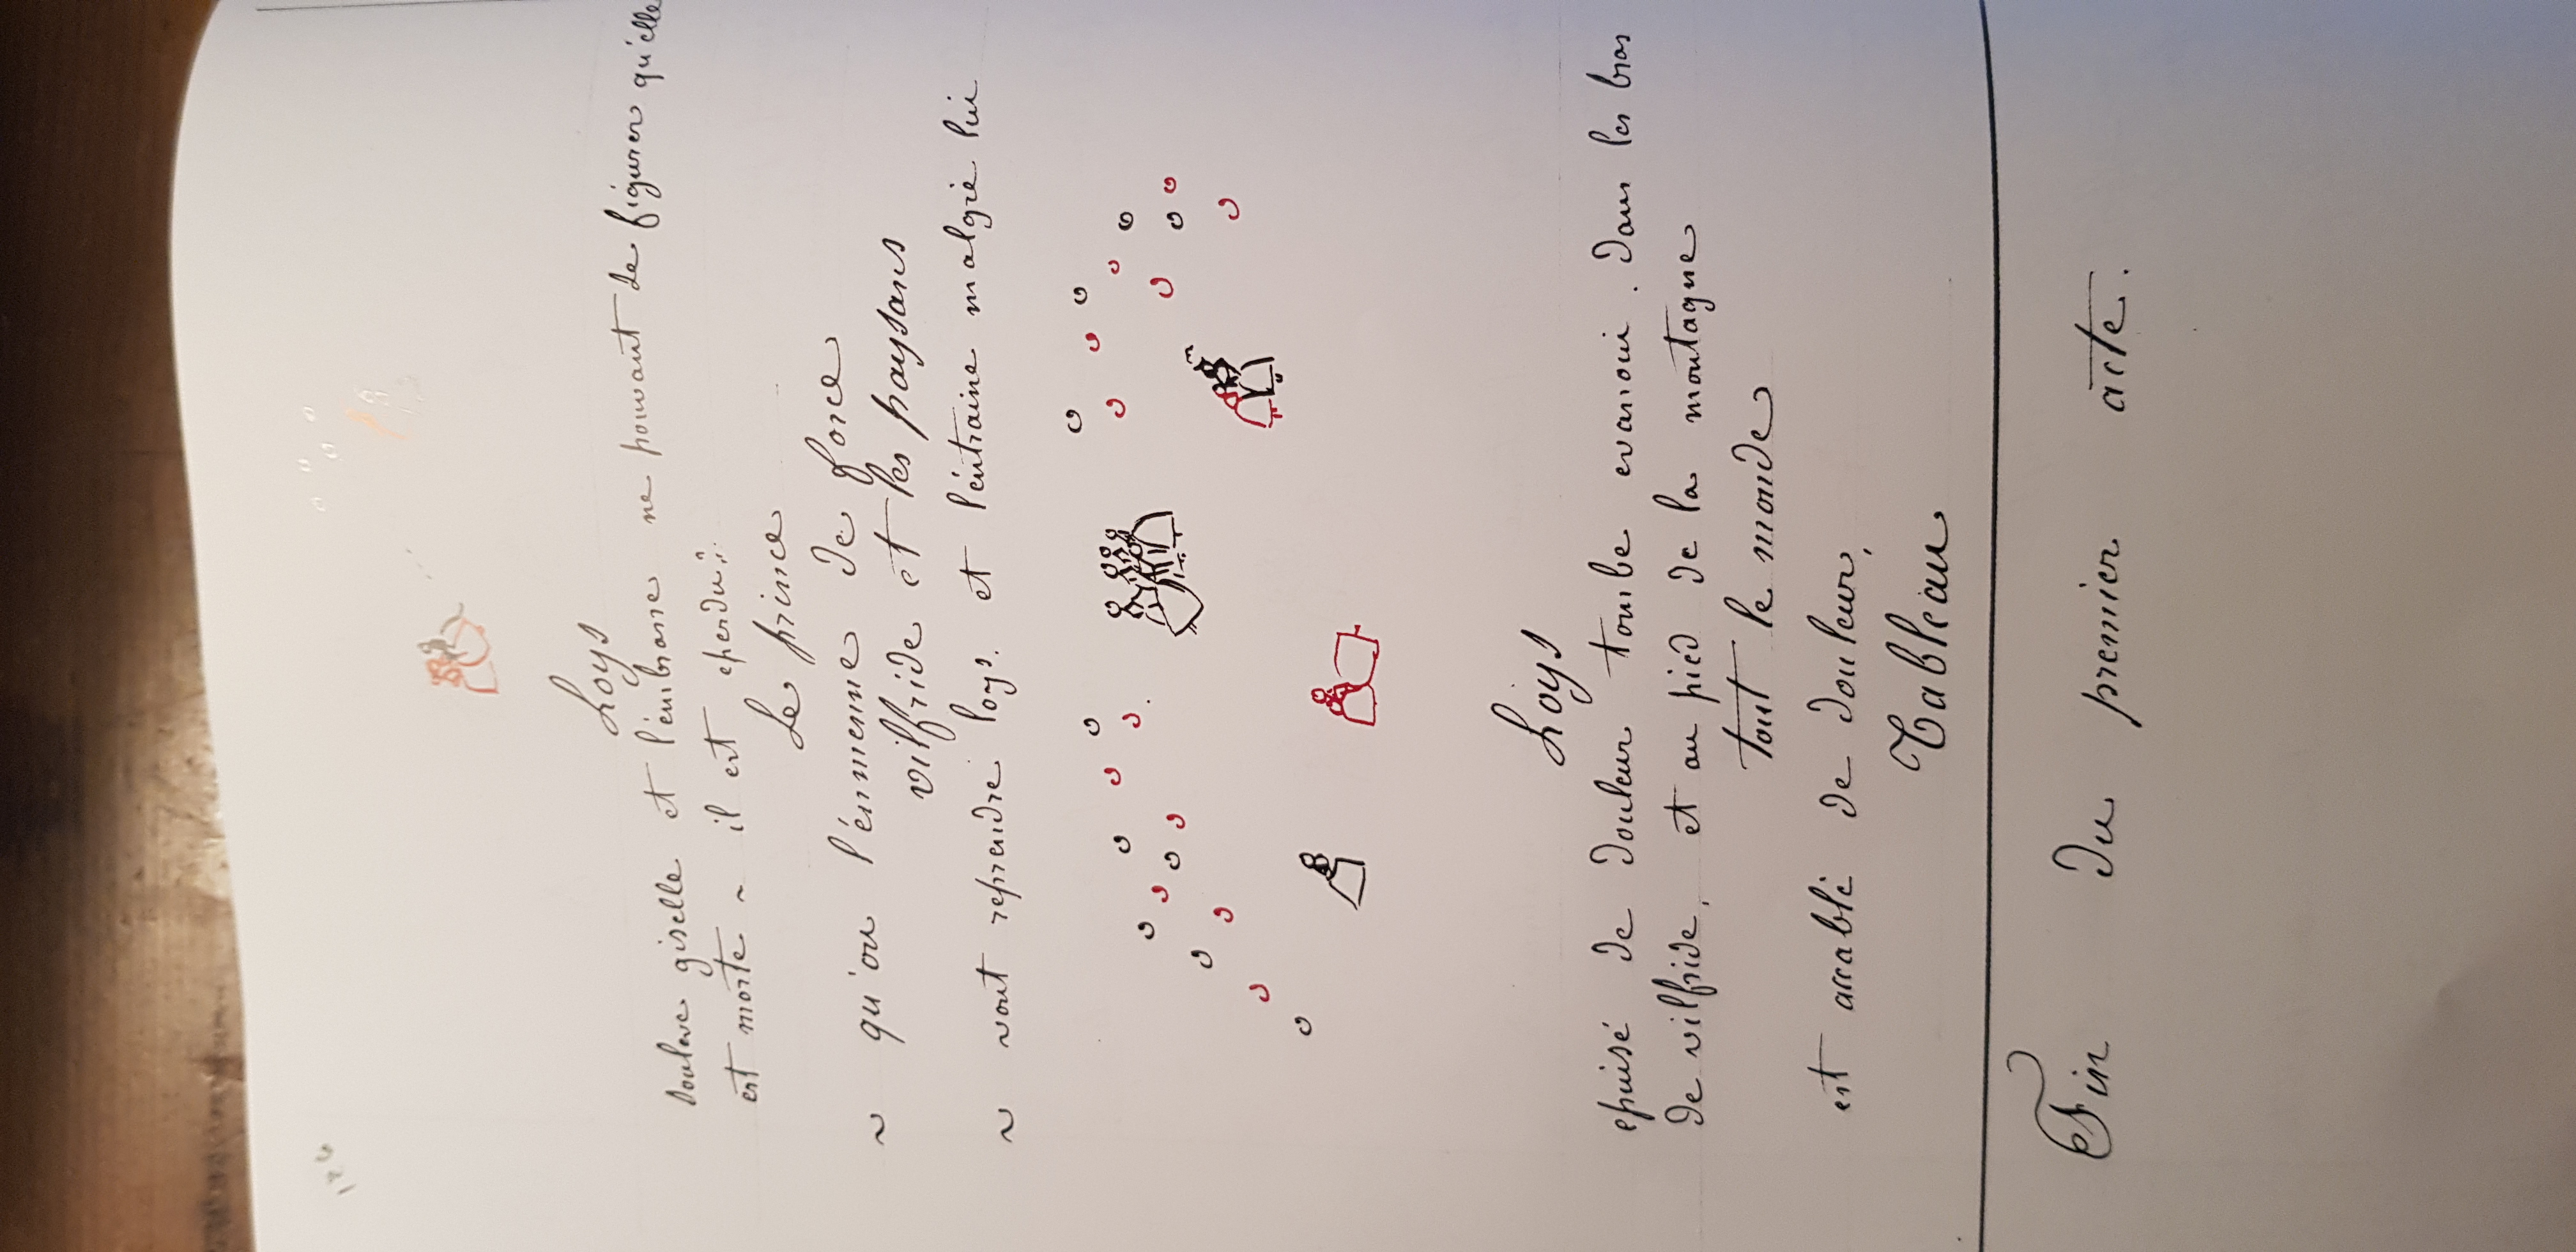 126
Loys
souleve giselle et l'émbrasse ne pouvant se figurer qu'elle
est morte ~ il est eperdu
Le prince
~ qu'on l'émmenne de force
vilfride et les paysans
~ vont reprendre loys. et l'éntraine malgré lui
Loys
epuisé de douleur tombe evanoui. dans les bras
de vilfride, et au pied de la montagne
tout le monde
est accablé de douleur,
Tableau
Fin du premier acte.